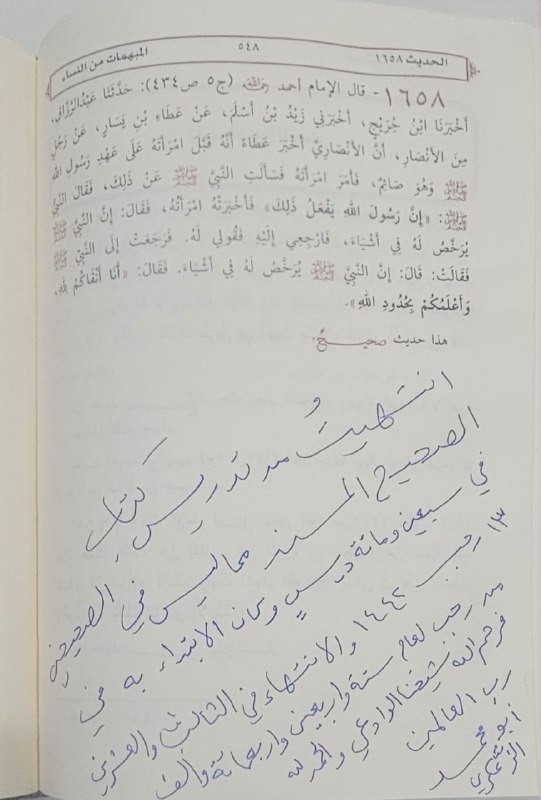 الحديث ١٦٥٨ ٥٤٨ المبهمات من النساء
١٦٥٨- قال الإمام أحمد رحمه الله (ج٥ ص٤٣٤): حَدَّثَنَا عَبْدُ الرَّزَّاقِ،
أَخْبَرَنَا ابْنُ جُرَيْجٍ، أَخْبَرَنِي زَيْدُ بْنُ أَسْلَمَ، عَنْ عَطَاءِ بْنِ يَسَارٍ، عَنْ رَجُلٍ
مِنَ الأَنْصَارِ، أَنَّ الأَنْصَارِيَّ أَخْبَرَ عَطَاءً أَنَّهُ قَبَّلَ امْرَأَتَهُ عَلَى عَهْدِ رَسُولِ اللهِ
ﷺ وَهُوَ صَائِمٌ، فَأَمَرَ امْرَأَتَهُ فَسَأَلَتِ النَّبِيَّ ﷺ عَنْ ذَلِكَ، فَقَالَ النَّبِيُّ
ﷺ: «إِنَّ رَسُولَ اللهِ يَفْعَلُ ذَلِكَ» فَأَخْبَرَتْهُ امْرَأَتُهُ، فَقَالَ: إِنَّ النَّبِيَّ ﷺ
يُرَخَّصُ لَهُ فِي أَشْيَاءَ، فَارْجِعِي إِلَيْهِ فَقُولِي لَهُ. فَرَجَعَتْ إِلَى النَّبِيِّ ﷺ
فَقَالَتْ: قَالَ: إِنَّ النَّبِيَّ ﷺ يُرَخَّصُ لَهُ فِي أَشْيَاءَ. فَقَالَ: «أَنَا أَتْقَاكُمْ لِلهِ.
وَأَعْلَمُكُمْ بِحُدُودِ اللهِ».
هذا حديث صحيحٌ.
انتهيت من تدريس كتاب
الصحيح المسند
في سبعين ومائة درس وكان الابتداء به في
١٣ رجب ١٤٤٢ والانتهاء في الثالث والعشرين
من رجب لعام ستة وأربعين وأربعمائة وألف
فرحم الله شيخنا الوادعي والحمد لله
رب العالمين
أبو محمد